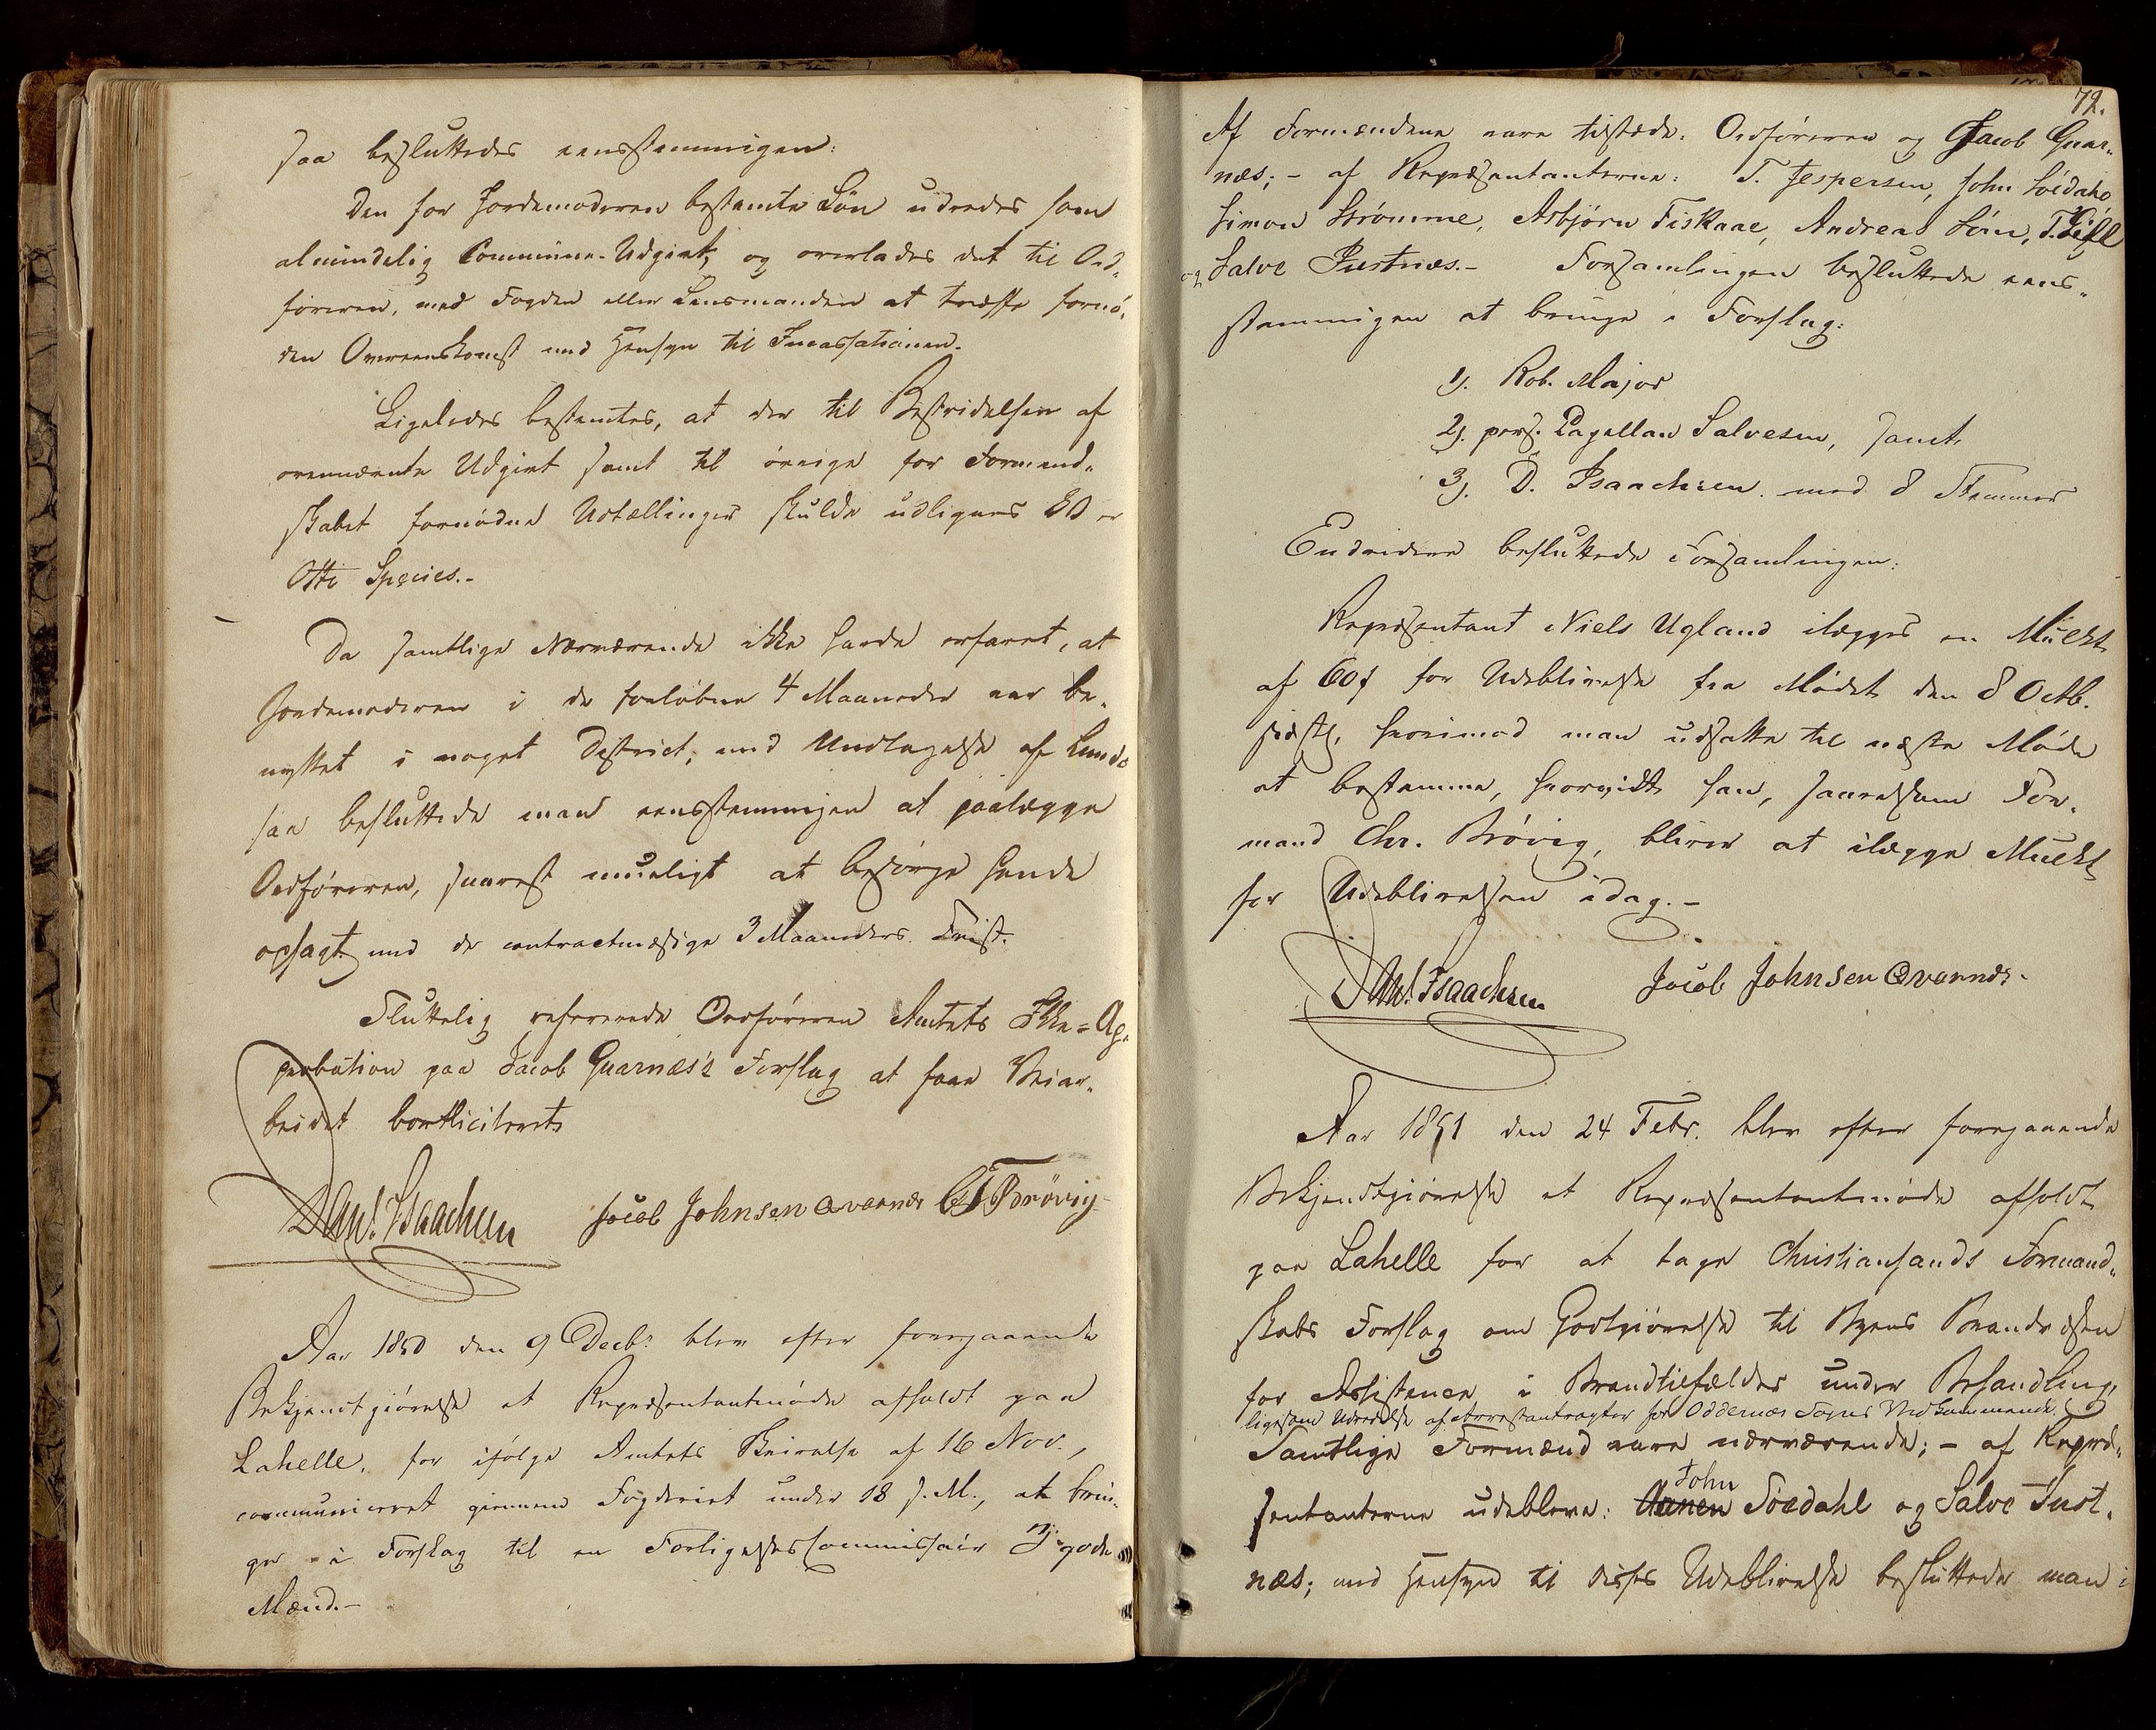 saa besluttedes eensstemmigen:
Den for Jordemoderen bestemte Løn udredes som
almindelig Commune-Udgivt, og overlades det til Ord-
føreren, med Fogden eller Lensmanden at træffe fornø-
den Overeenskomst med Hensyn til Incassationen.
Ligeledes bestemtes, at der til Bestridelsen af
ovennævnte Udgivt samt til øvrige for Formand-
skabet fornødne Udtællinger skulde udlignes 80 er
Otti Species.-
Da samtlige Nærværende ikke havde erfaret, at
Jordemoderen i de forløbne 4 Maaneder var be-
nyttet i noget District, med Undtagelse af Lunds
saa besluttede man eensstemmigen at paalægge
Ordføreren, snarest mueligt at besørge hende
opsagt med de contractmæsige 3 Maaneders Frist.
Sluttelig refererede Ordføreren Amtets Ikke=Ap-
probation paa Jacob Qvarnæs's Forslag at faae Veiar-
beidet bortliciteret
D Anl. Isaachsen Jacob Johnsen Qvarnæs C T Brøvig
Aar 1850 den 9 Decbr. blev efter foregaaende
Bekjendtgiørelse et Repræsentantmøde afholdt paa
Lahelle, for ifølge Amtets Skrivelse af 16 Nov.,
communiceret giennem Fogderiet under 18 s.M., at brin-
ge i Forslag til en Forligelsescommissair 3 gode
Mænd.-
72.
Af Formændene vare tilstæde: Ordføreren og Jacob Qvar-
næs; - af Repræsentanterne: T. Jespersen, John Söedahl
Simon Strömme, Asbjørn Fiskaae, Andreas Sóm,
og Salve Justnæs.- Forsamlingen besluttede eens-
stemmigen at bringe i Forslag:
1). Rob. Major
2). pers. Capellan Salvesen, samt
3). D. Isaachsen med 8 Stemmer
Endvidere besluttede Forsamlingen:
Repræsentant Niels Ugland ilægges en Mulkt
af 60 f for Udeblivelse fra Mødet den 8 Octb.
sidstl., hvorimod man udsatte til næste Møde
at bestemme, hvorvidt han, saavelsom For-
mand Chr. Brøvig, bliver at ilægge Mulkt
for Udeblivelsen idag.-
D Anl. Isaachsen Jacob Johnsen Qvarnæs-
Aar 1851 den 24 Febr. blev efter foregaaende
Bekjendtgiørelse et Repræsentantmøde afholdt
paa Lahelle for at tage Christiansands Formand-
skabs Forslag om Godtgiørelse til Byens Brandvæsen
for Assistence i Brandtilfælder under Behandling,
ligesom Udredelse af Arrestantragter for Oddernæs Sogns Vedkommende.
Samtlige Formænd vare nærværende; - af Repræ-
John
sentanterne udebleve: Aanen Söedahl og Salve Just-
næs; med Hensyn til disses Udeblivelse besluttede man i